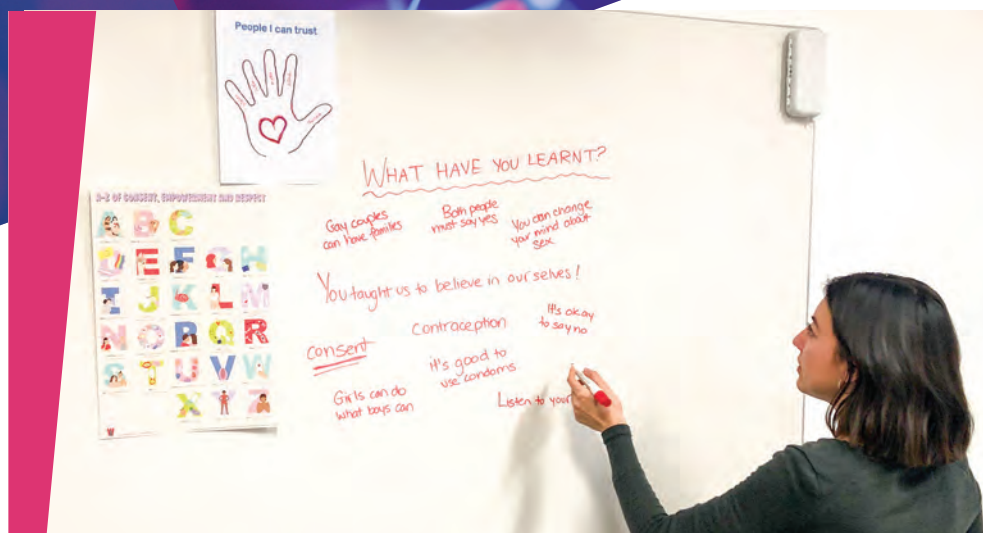 People I can trust
A-Z OF CONSENT, EMPOWERMENT AND RESPECT
A B C
D E F G H
I J K L M
N O P Q R
S T U V W
X Y Z
WHAT HAVE YOU LEARNT?
Gay couples
can have families
Both people
must say yes
You can change
your mind about
sex
You taught us to believe in ourselves!
consent
contraception
It's okay
to say no
it's good to
use condoms
Girls can do
what boys can
Listen to your